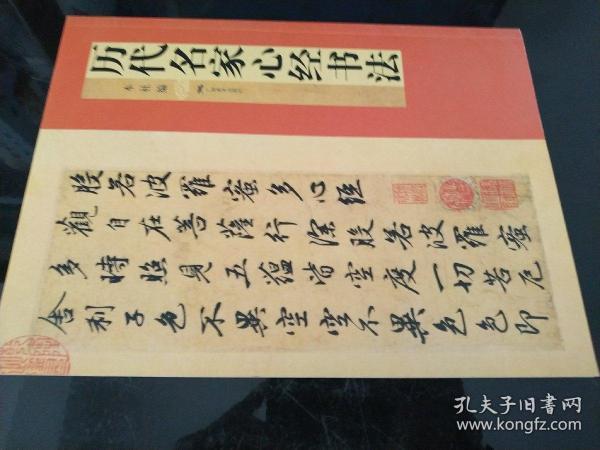 历代名家心经书法
本社编
般若波羅蜜多心經
觀自在菩薩行深般若波羅蜜
多時照見五蘊皆空度一切苦厄
舍利子色不異空空不異色色即
孔夫子旧书网
www.kongfz.com